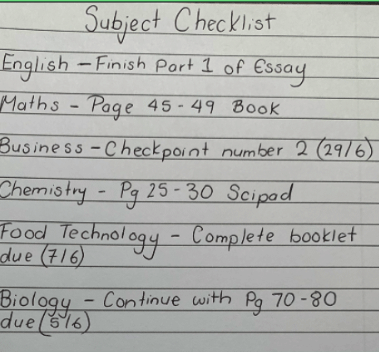 Subject Checklist
English - Finish Part 1 of Essay
Maths - Page 45 - 49 Book
Business - Checkpoint number 2 (29/6)
Chemistry - Pg 25 - 30 Scipad
Food Technology - Complete booklet
due (7/6)
Biology - Continue with Pg 70 - 80
due (5/6)